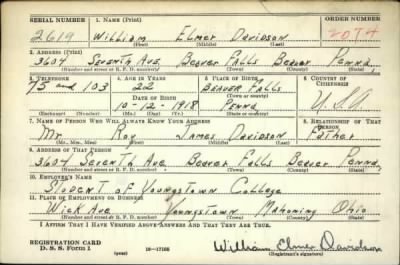 SERIAL NUMBER 1. NAME (Print) ORDER NUMBER
2619 William Elmer Davidson
(First) (Middle) (Last)
2. ADDRESS (Print)
3604 Seventh Ave. Beaver Falls Beaver Penna.
(Number and street or R. F. D. number) (Town) (County) (State)
3. TELEPHONE 4. AGE IN YEARS 5. PLACE OF BIRTH 6. COUNTRY OF CITIZENSHIP
22 Beaver Falls
DATE OF BIRTH (Town or county)
103 10-12-1918 Penna U.S.A.
(Exchange) (Number) (Mo.) (Day) (Yr.) (State or country)
7. NAME OF PERSON WHO WILL ALWAYS KNOW YOUR ADDRESS 8. RELATIONSHIP OF THAT PERSON
Mr. Roy James Davidson Father
(Mr., Mrs., Miss) (First) (Middle) (Last)
9. ADDRESS OF THAT PERSON
3604 Seventh Ave Beaver Falls Beaver Penna.
(Number and street or R. F. D. number) (Town) (County) (State)
10. EMPLOYER'S NAME
Student of Youngstown College
11. PLACE OF EMPLOYMENT OR BUSINESS
Wick Ave Youngstown Mahoning Ohio
(Number and street or R. F. D. number) (Town) (County) (State)
I AFFIRM THAT I HAVE VERIFIED ABOVE ANSWERS AND THAT THEY ARE TRUE.
REGISTRATION CARD
D. S. S. Form 1 (over) William Elmer Davidson
(Registrant's signature)